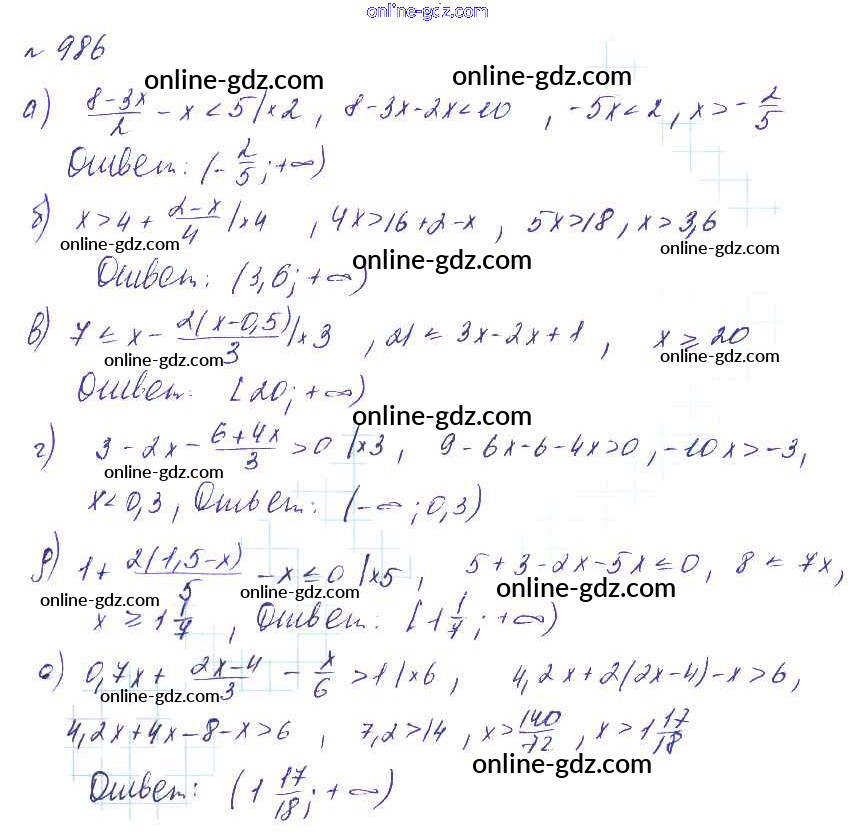 online-gdz.com
№ 986
online-gdz.com online-gdz.com
а) (8-3x)/2 - x < 5 |×2, 8-3x-2x<10, -5x<2, x>-2/5
Ответ: (-2/5; +∞)
б) x>4+(2-x)/4 |×4, 4x>16+2-x, 5x>18, x>3,6
online-gdz.com online-gdz.com
Ответ: (3,6; +∞)
в) 7 ≤ x - 2(x-0,5)/3 |×3, 21 ≤ 3x-2x+1, x ≥ 20
online-gdz.com online-gdz.com
Ответ: [20; +∞)
online-gdz.com
г) 3-2x-(6+4x)/3 >0 |×3, 9-6x-6-4x>0, -10x>-3,
online-gdz.com
x<0,3, Ответ: (-∞; 0,3)
д) 1+2(1,5-x)/5 -x≤0 |×5, 5+3-2x-5x≤0, 8≤7x,
online-gdz.com online-gdz.com online-gdz.com
x ≥ 1 1/7, Ответ: [1 1/7; +∞)
е) 0,7x+(2x-4)/3 - x/6 >1 |×6, 4,2x+2(2x-4)-x>6,
online-gdz.com online-gdz.com
4,2x+4x-8-x>6, 7,2>14, x>140/72, x>1 17/18
online-gdz.com
Ответ: (1 17/18; +∞)